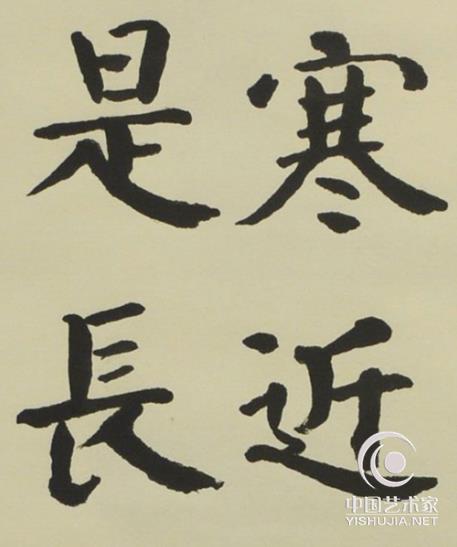 寒近
是長
中国艺术家
YISHUJIA.NET